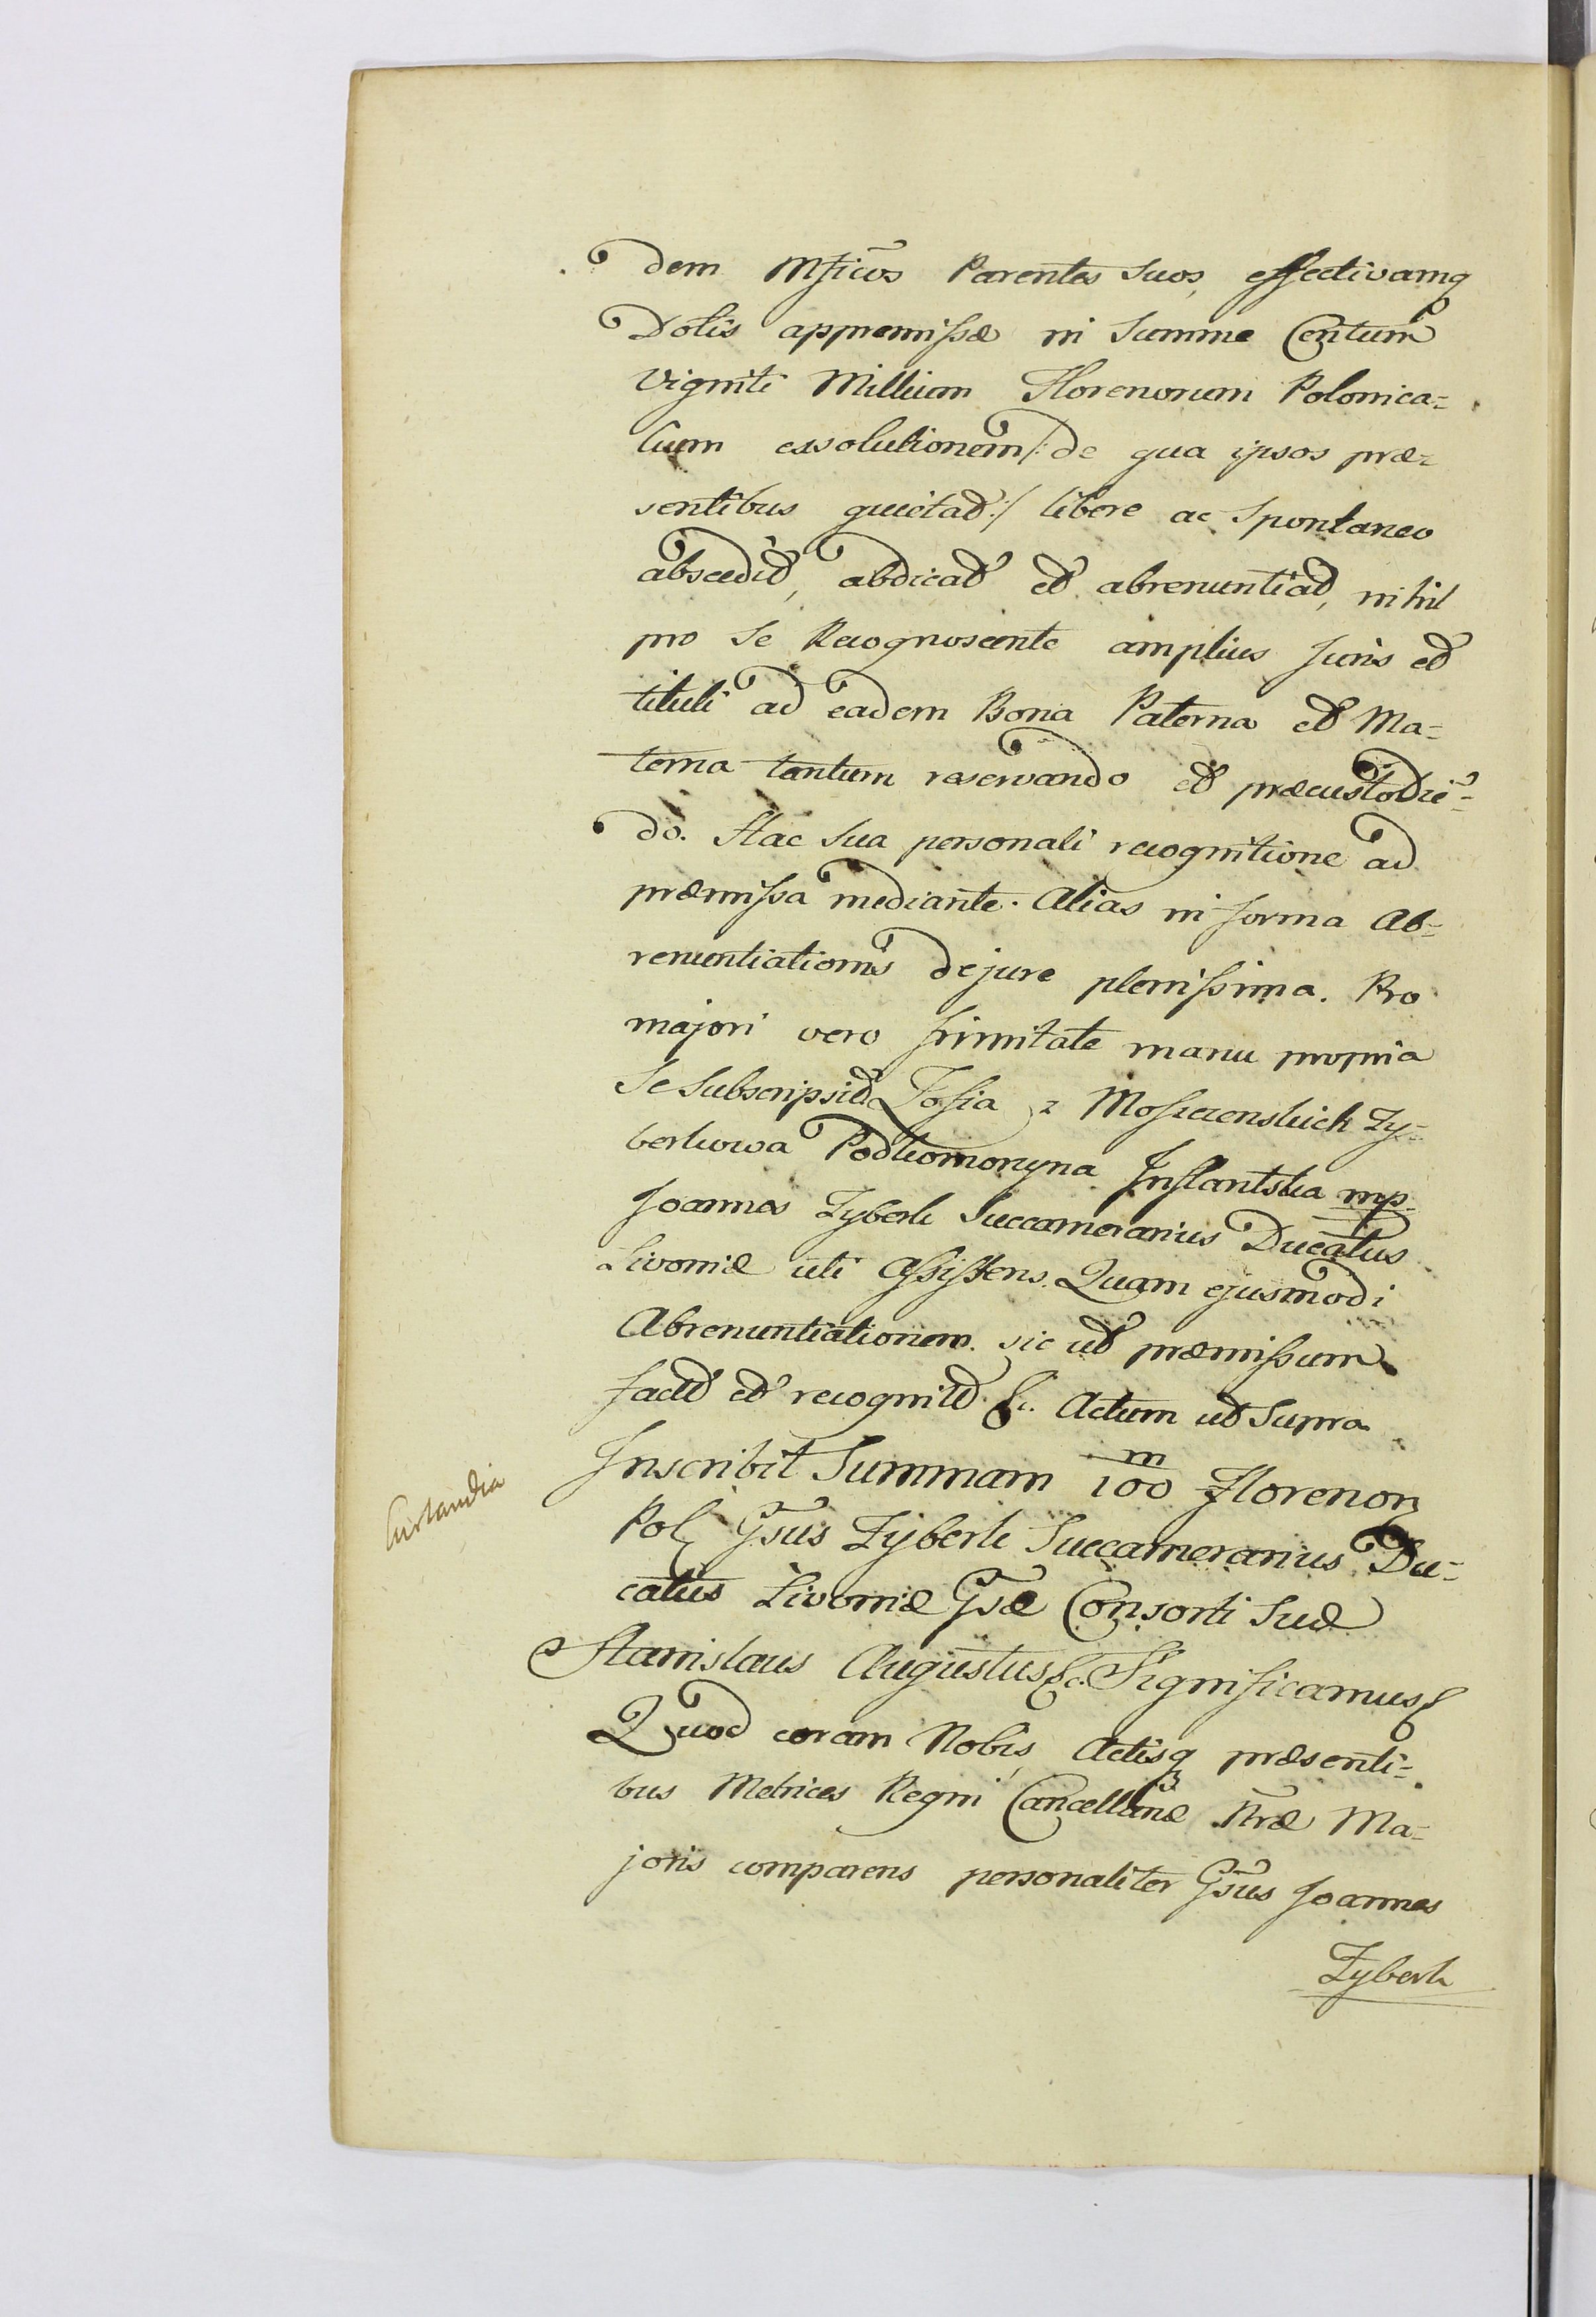 dem Mficos Parentes Suos, effectivamq
Dotis appromissæ in Summe Centum
Viginti Millium Florenorum Polonica=
lium exsolutionem /: de qua ipsos præ=
sentibus quietat :/ libere ac Spontanee
abscedit, abdicat et abrenuntiat, nihil
pro Se Recognoscente amplius Juris et
tituli ad eadem Bona Paterna et Ma=
terna tantum reservando et præcustodiē=
do. Hac Sua personali recognitione ad
præmissa mediante. Alias in forma Ab=
renuntiationis de jure plenissima. Pro
majori vero firmitate manu propria
Se Subscripsit Zofia z Moszczenskich Zy=
berkowa Podkomorzyna Inflantska mp.
Joannes Zyberk Succamerarius Ducatus
Livoniæ uti Assistens. Quam ejusmodi
Abrenuntiationem sic ut præmissum
fact et recognit &c. Actum ut Supra
Inscribit Summam 100 m Florenor
Pol Gsus Zyberk Succamerarius Du=
catus Livoniæ Gsæ Consorti Suæ
Curlandia
Stanislaus Augustus &c. Significamus &
Quod coram Nobis, Actisq præsenti=
bus Metrices Regni Cancellariæ Nræ Ma=
joris comparens personaliter Gsus Joannes
Zyberk